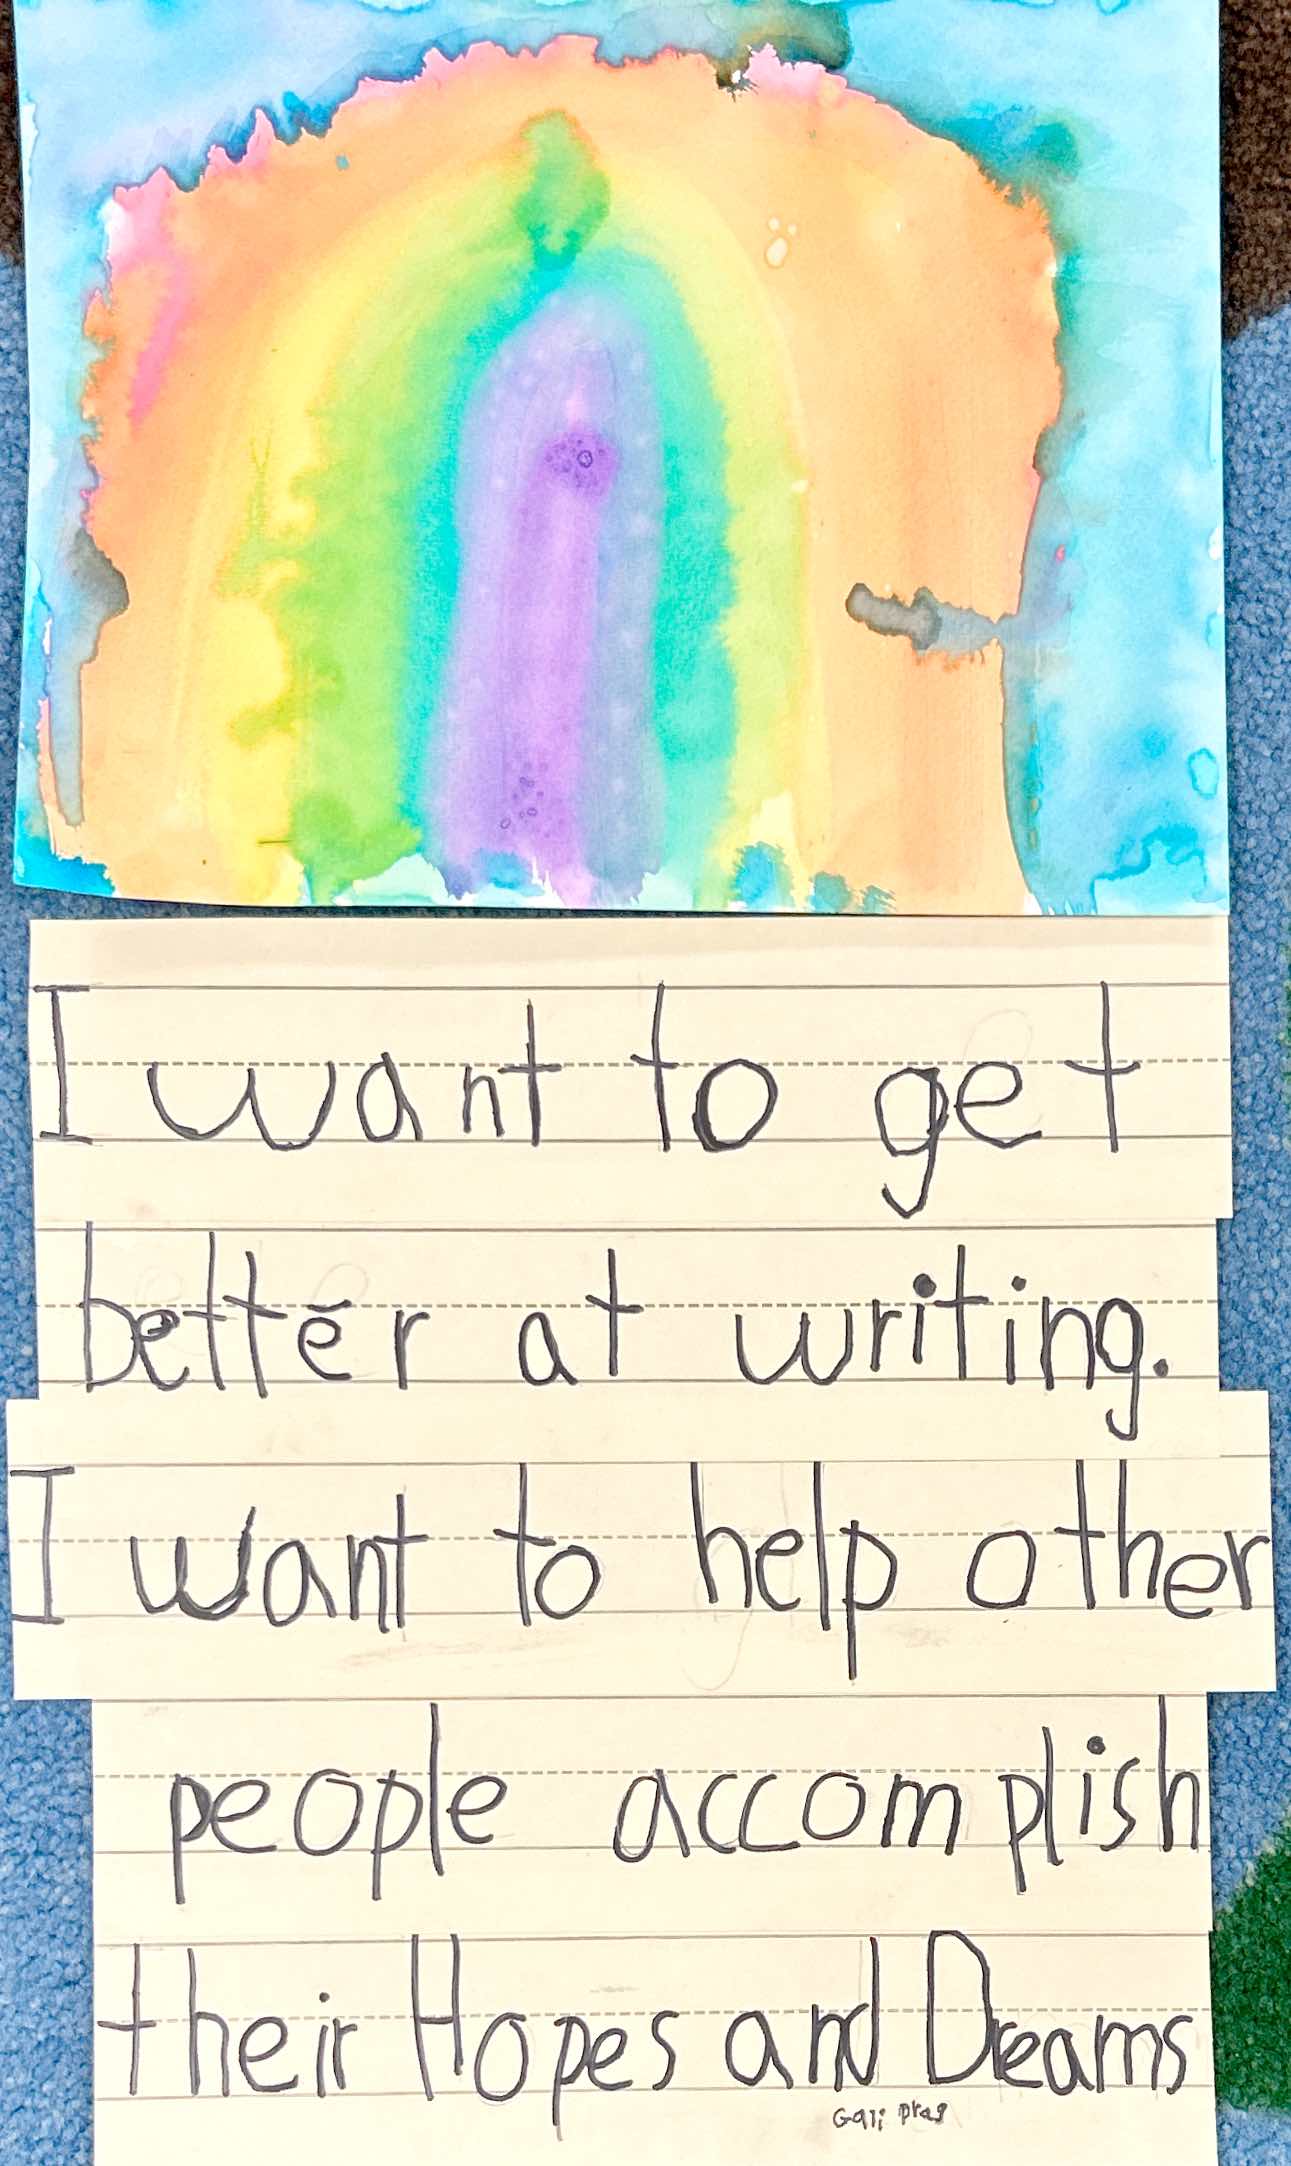 I want to get
better at writing.
I want to help other
people accomplish
their Hopes and Dreams